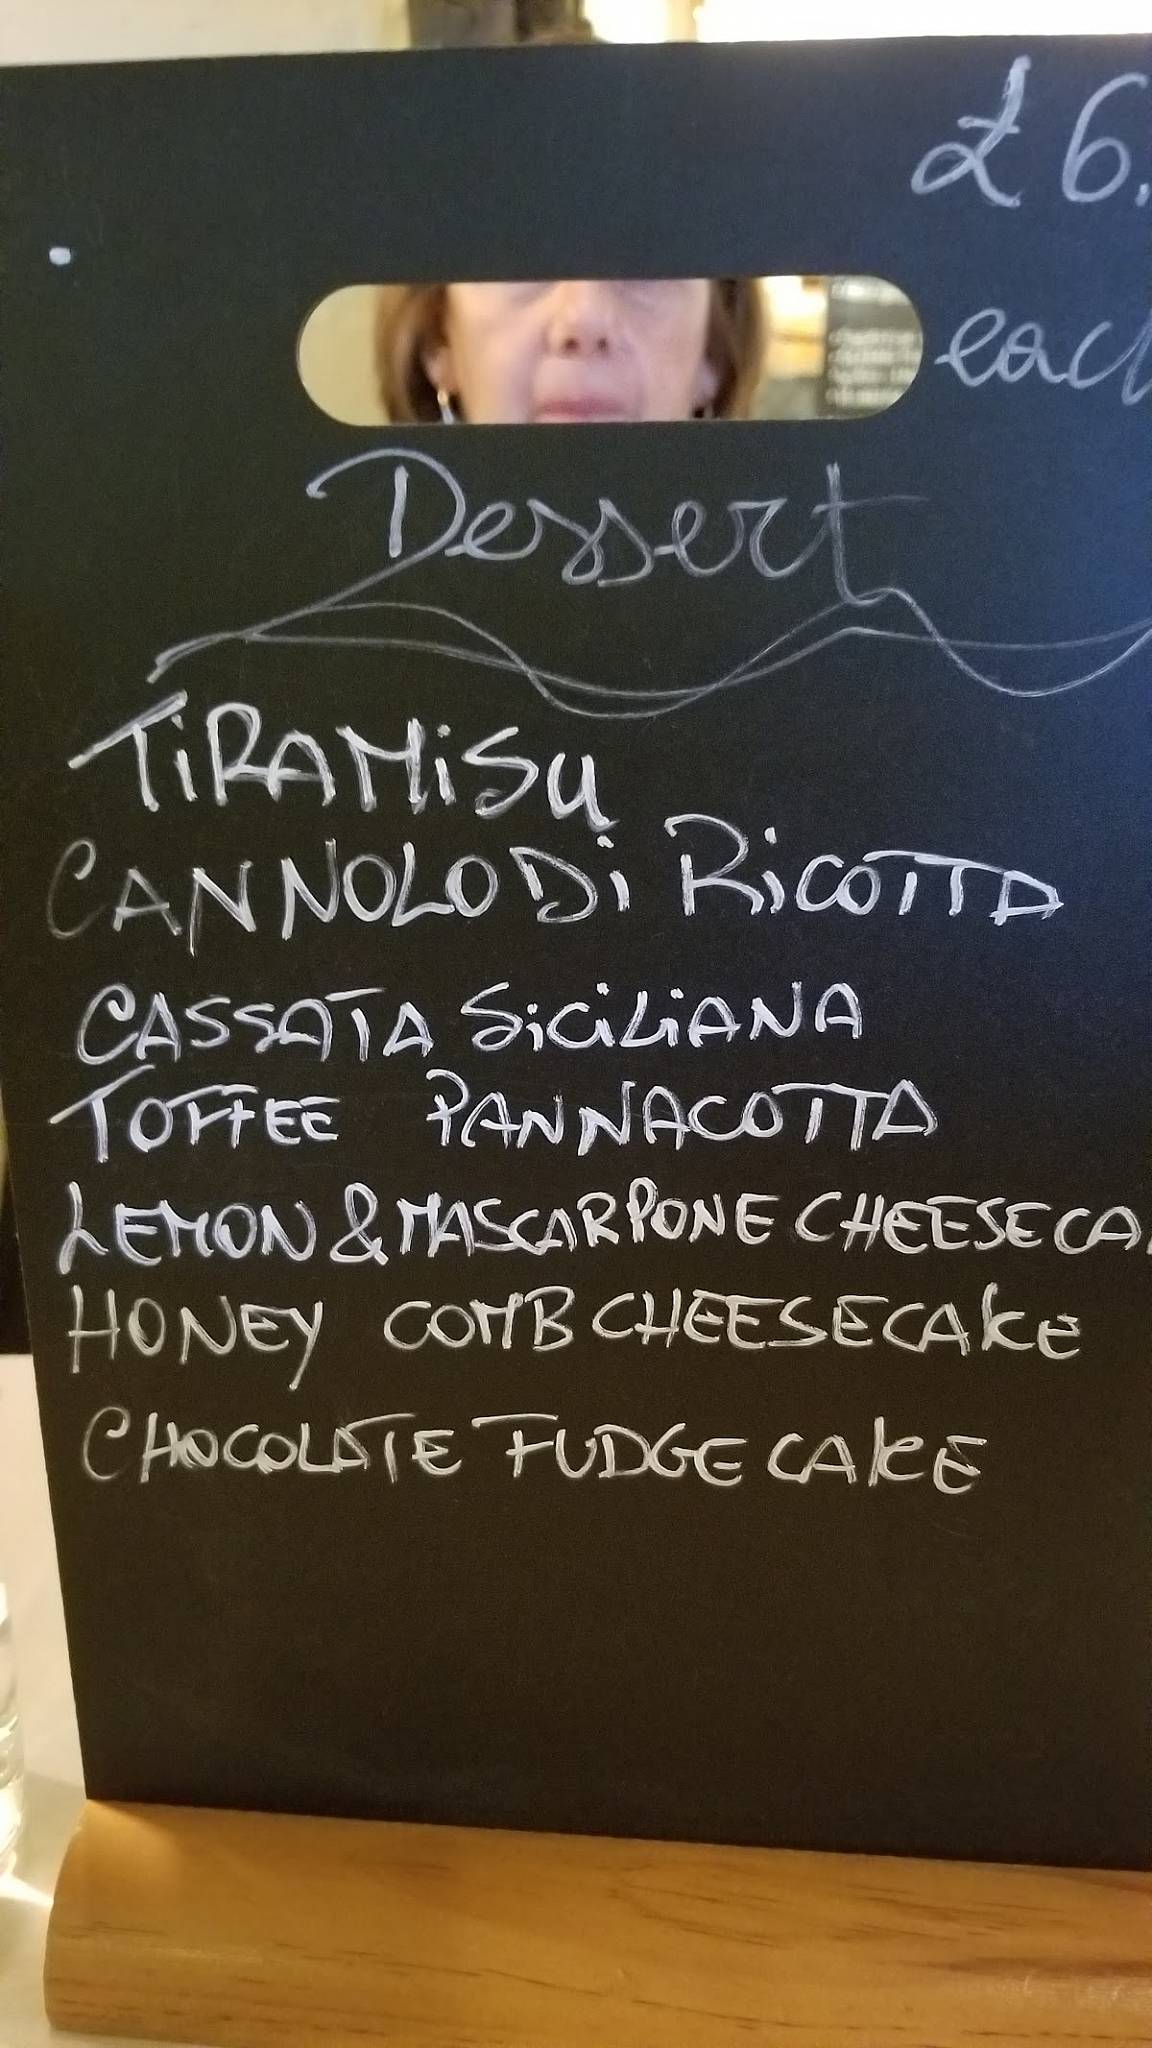 £6.
each
Dessert
TiRAMiSu
CANNOLO Di RiCOTTA
CASSATA SiCiLiANA
TOFFEE PANNACOTTA
LEMON & MASCARPONE CHEESECA
HONEY COMB CHEESECAKE
CHOCOLATE FUDGE CAKE